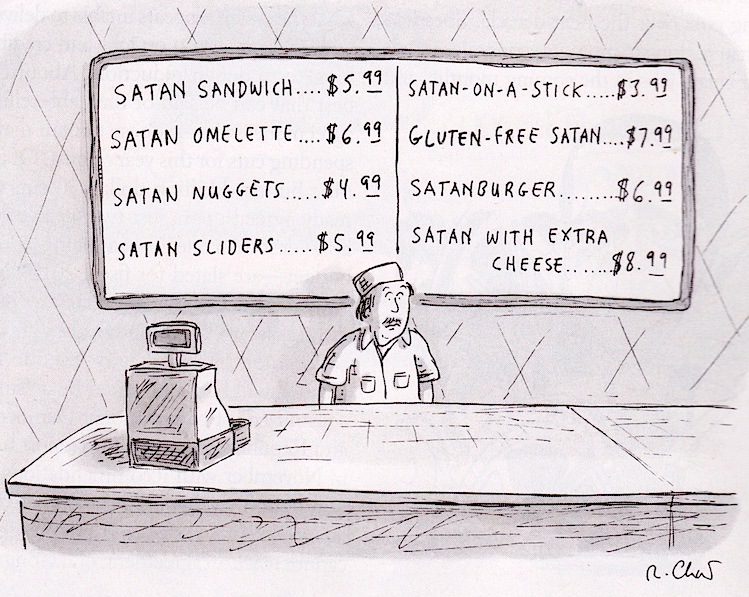 SATAN SANDWICH....$5.99
SATAN OMELETTE....$6.99
SATAN NUGGETS.....$4.99
SATAN SLIDERS.....$5.99
SATAN-ON-A-STICK.....$3.99
GLUTEN-FREE SATAN....$7.99
SATANBURGER........$6.99
SATAN WITH EXTRA
CHEESE.......$8.99
R. Chast